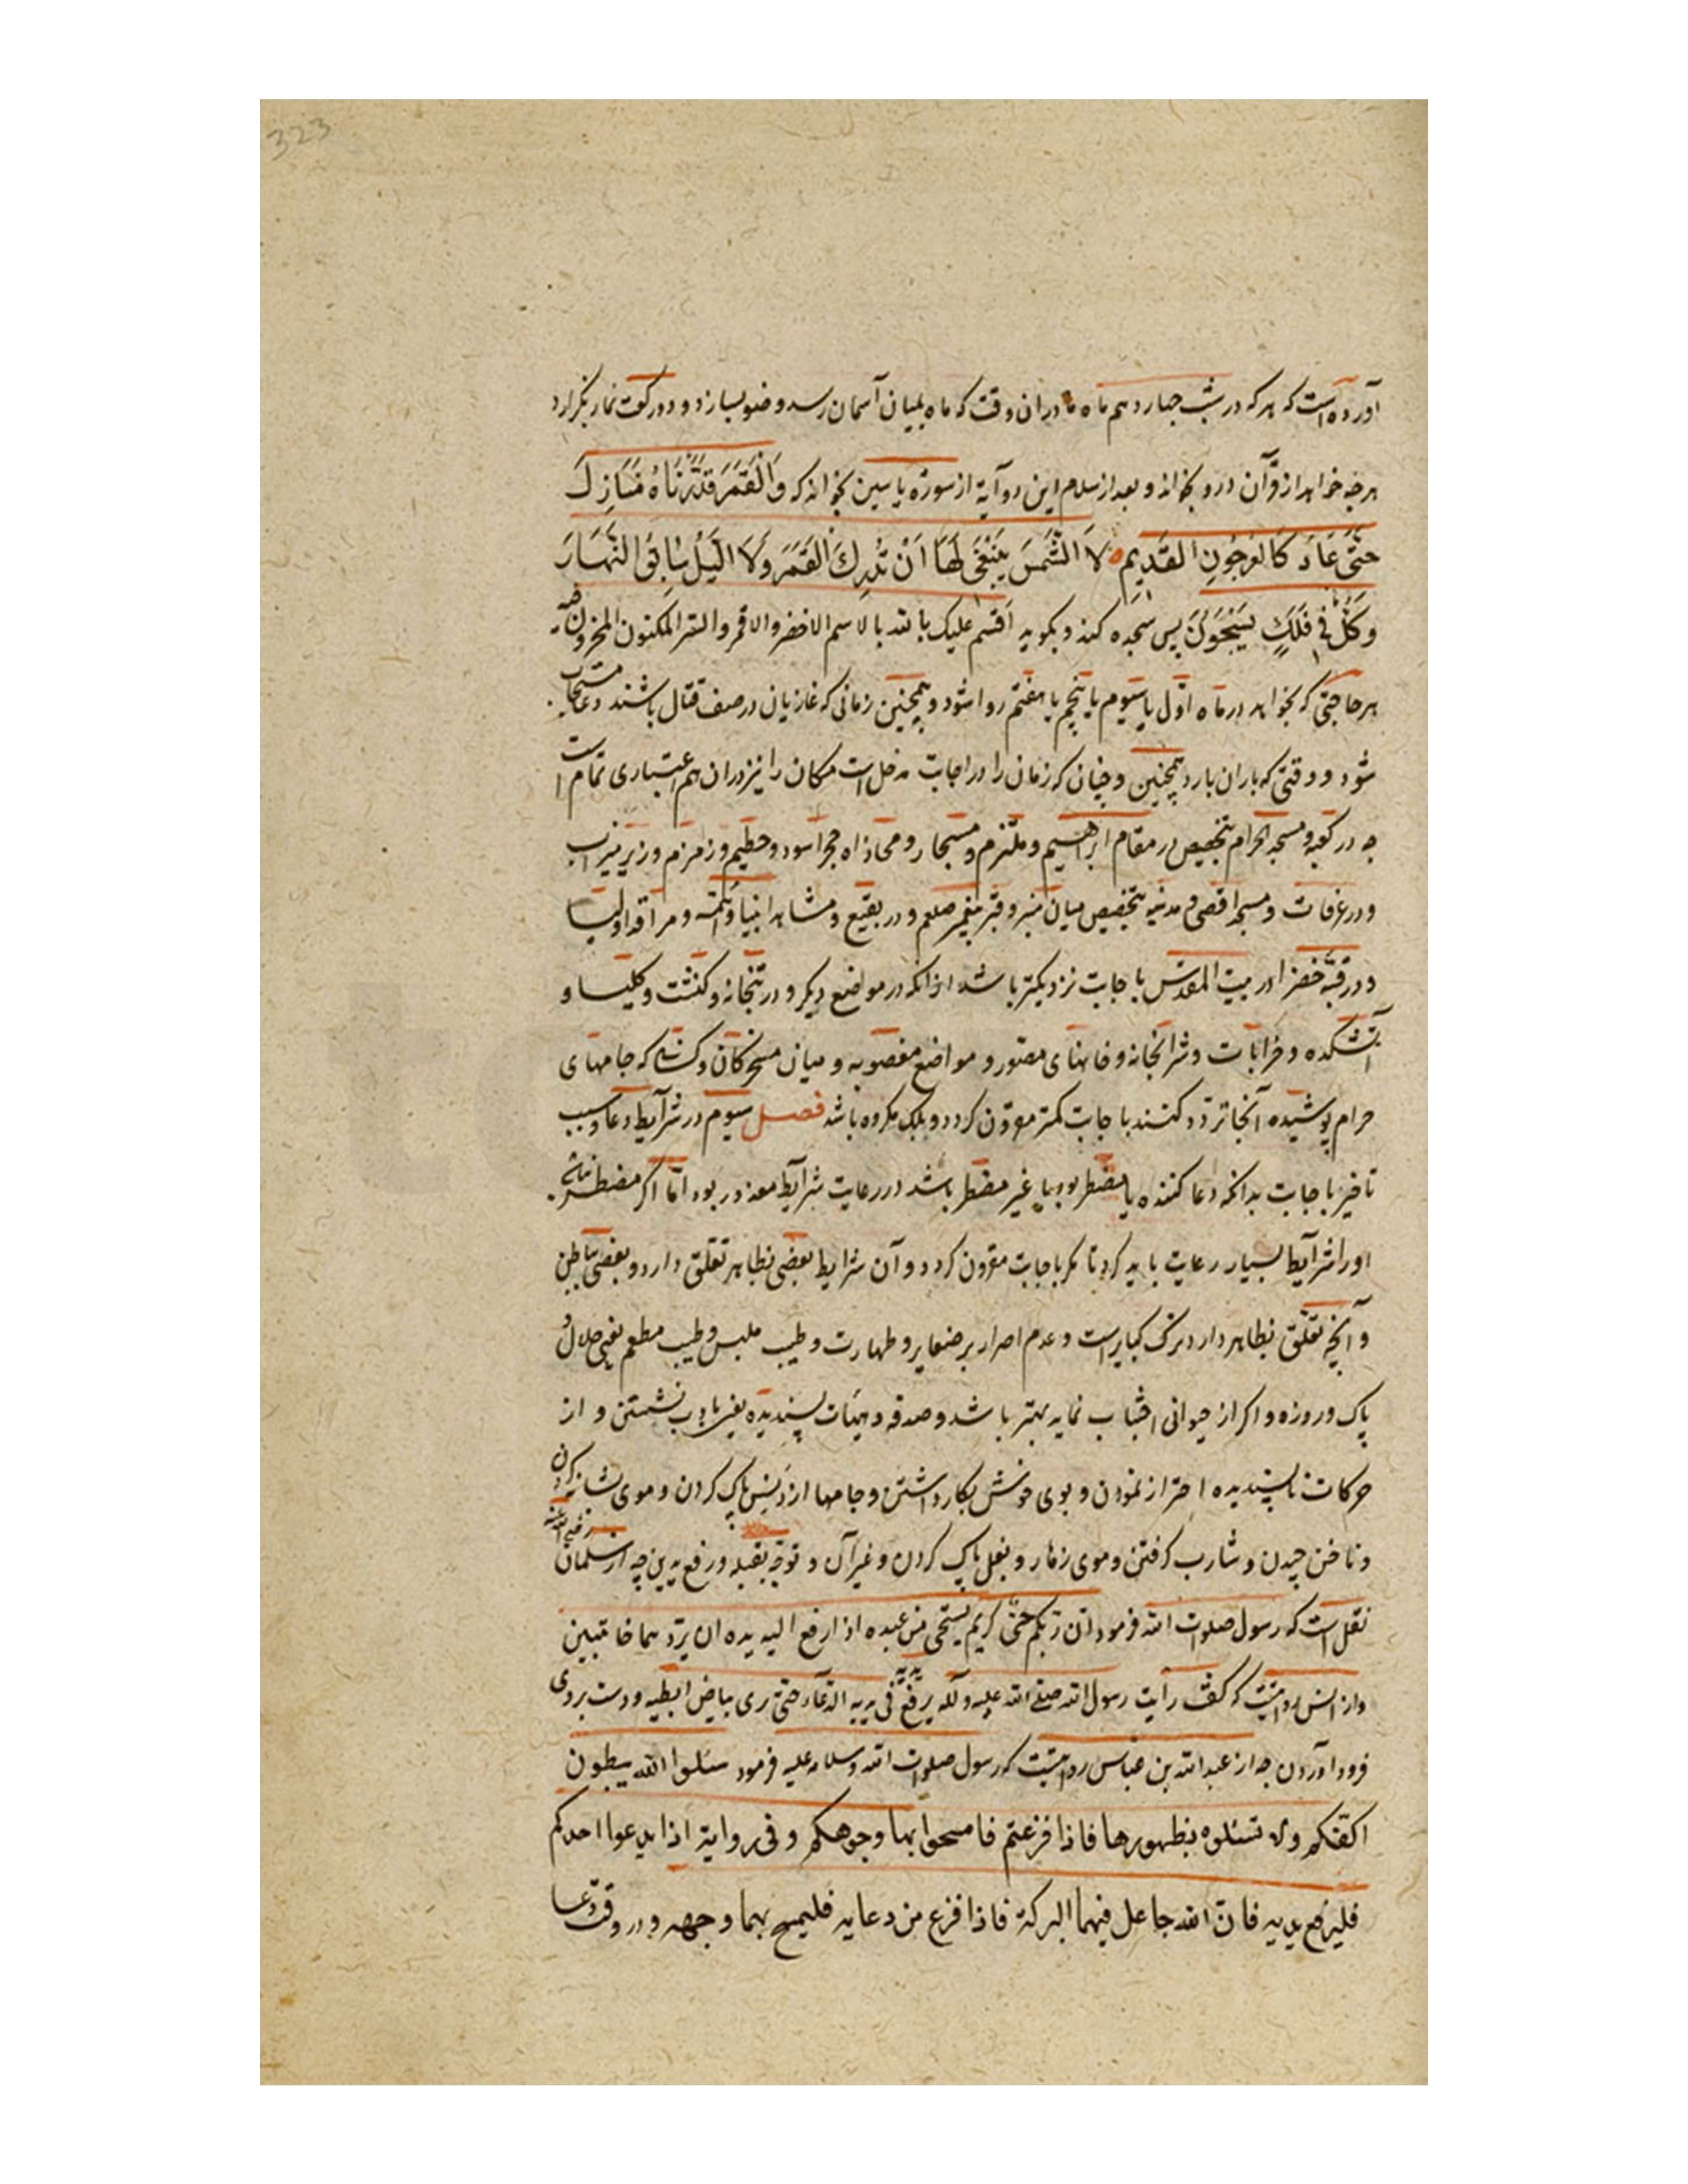 323
آورده است که هرکه در شب چهاردهم ماه دران وقت که ماه بمیان آسمان رسد وضو بسازد و دو رکعت نماز بگزارد
هرچه خواهد از قرآن درو بخواند و بعد از سلام این دو آیة از سورۀ یاسین بخواند که وَالْقَمَرَ قَدَّرْنَاهُ مَنَازِلَ
حَتّٰی عَادَ کَالْعُرْجُونِ القَدِیمِ لاَ الشَّمْسُ یَنْبَغِی لَهَا اَنْ تُدْرِكَ القَمَرَ وَلَا اللَّیْلُ سَابِقُ النَّهَارَ
وَکُلٌّ فِی فَلَكٍ یَسْبَحُونَ پس سجده کند و بگوید اقسم علیك بالله بالاسم الاخضر والاقمر والسر المکنون المخزون
هر حاجتی که بخواهد در ماه اوّل یا سیوم یا پنجم یا هفتم روا شود و همچنین زمانی که غازیان در صف قتال باشند دعا مستجاب
شود و وقتی که باران بارد همچنین و چنان که زمان را در اجابت مدخل است مکان را نیز دران هم اعتباری تمام است
چه در کعبه و مسجد الحرام بتخصیص در مقام ابراهیم و ملتزم و مستجار و محاذاه حجر اسود و حطیم و زمزم و زیر میزاب
و در عرفات و مسجد اقصی و مدینه بتخصیص میان منبر و قبر پیغمبر صلعم و در بقیع و مشاهد انبیا و ائمّه و مراقد اولیا
و در قبّه خضرا در بیت المقدس باجابت نزدیکتر باشد از آنکه در مواضع دیگر و در بتخانه و کنشت و کلیسا و
آتشکده و خرابات و شرابخانه و خانهای مصوّر و مواضع مغصوبه و میان مسخرکان و کسانی که جامهای
حرام پوشیده آنجا تردّد کنند باجابت کمتر مقرون کردد و بلك مکروه باشد فصل سیوم در شرآیط دعا و سبب
تاخیر باجابت بدانکه دعا کننده یا مضطر بود یا غیر مضطر باشد در رعایت شرآیط معذور بود امّا اکر مضطر نباشد
او را شرآیط بسیار رعایت باید کرد تا مکر باجابت مقرون کردد و آن شرایط بعضی بظاهر تعلّق دارد و بعضی بباطن
و آنچه تعلّق بظاهر دارد ترک کبایر است و عدم اصرار بر صغایر و طهارت و طیب ملبس و طیب مطعم یعنی حلال و
پاک و روزه و اکر از حیوانی اجتناب نماید بهتر باشد و صدقه و هیئات پسندیده یعنی بادب نشستن و از
حرکات ناپسندیده احتراز نمودن و بوی خوش بکار داشتن و جامها از دنس پاک کردن و موی شانه کردن
و ناخن چیدن و شارب کرفتن و موی زهار و بغل پاک کردن و غیر آن و توجّه بقبله و رفع یدین چه از سلمان رضی الله عنه
نقل است که رسول صلوات الله فرمود انّ ربّکم حیّ کریم یستحی من عبده اذا رفع الیه یده ان یردّهما خائبین
و از انس روایتست که کفت رآیت رسول الله صلّی الله علیه وآله یرفع یدیه فی الدّعآء حتّی یری بیاض ابطیه و دست بروی
فرود آوردن چه از عبدالله بن عباس روایتست که رسول صلوات الله وسلامه علیه فرمود سئلوا الله ببطون
اکفّکم ولا تسئلوه بظهورها فاذا فرغتم فامسحوا بها وجوهکم وفی روایة اذا یدعوا احدکم
فلیرفع یدیه فانّ الله جاعل فیهما البرکة فاذا فرغ من دعایه فلیمسح بهما وجهه و در وقت دعا